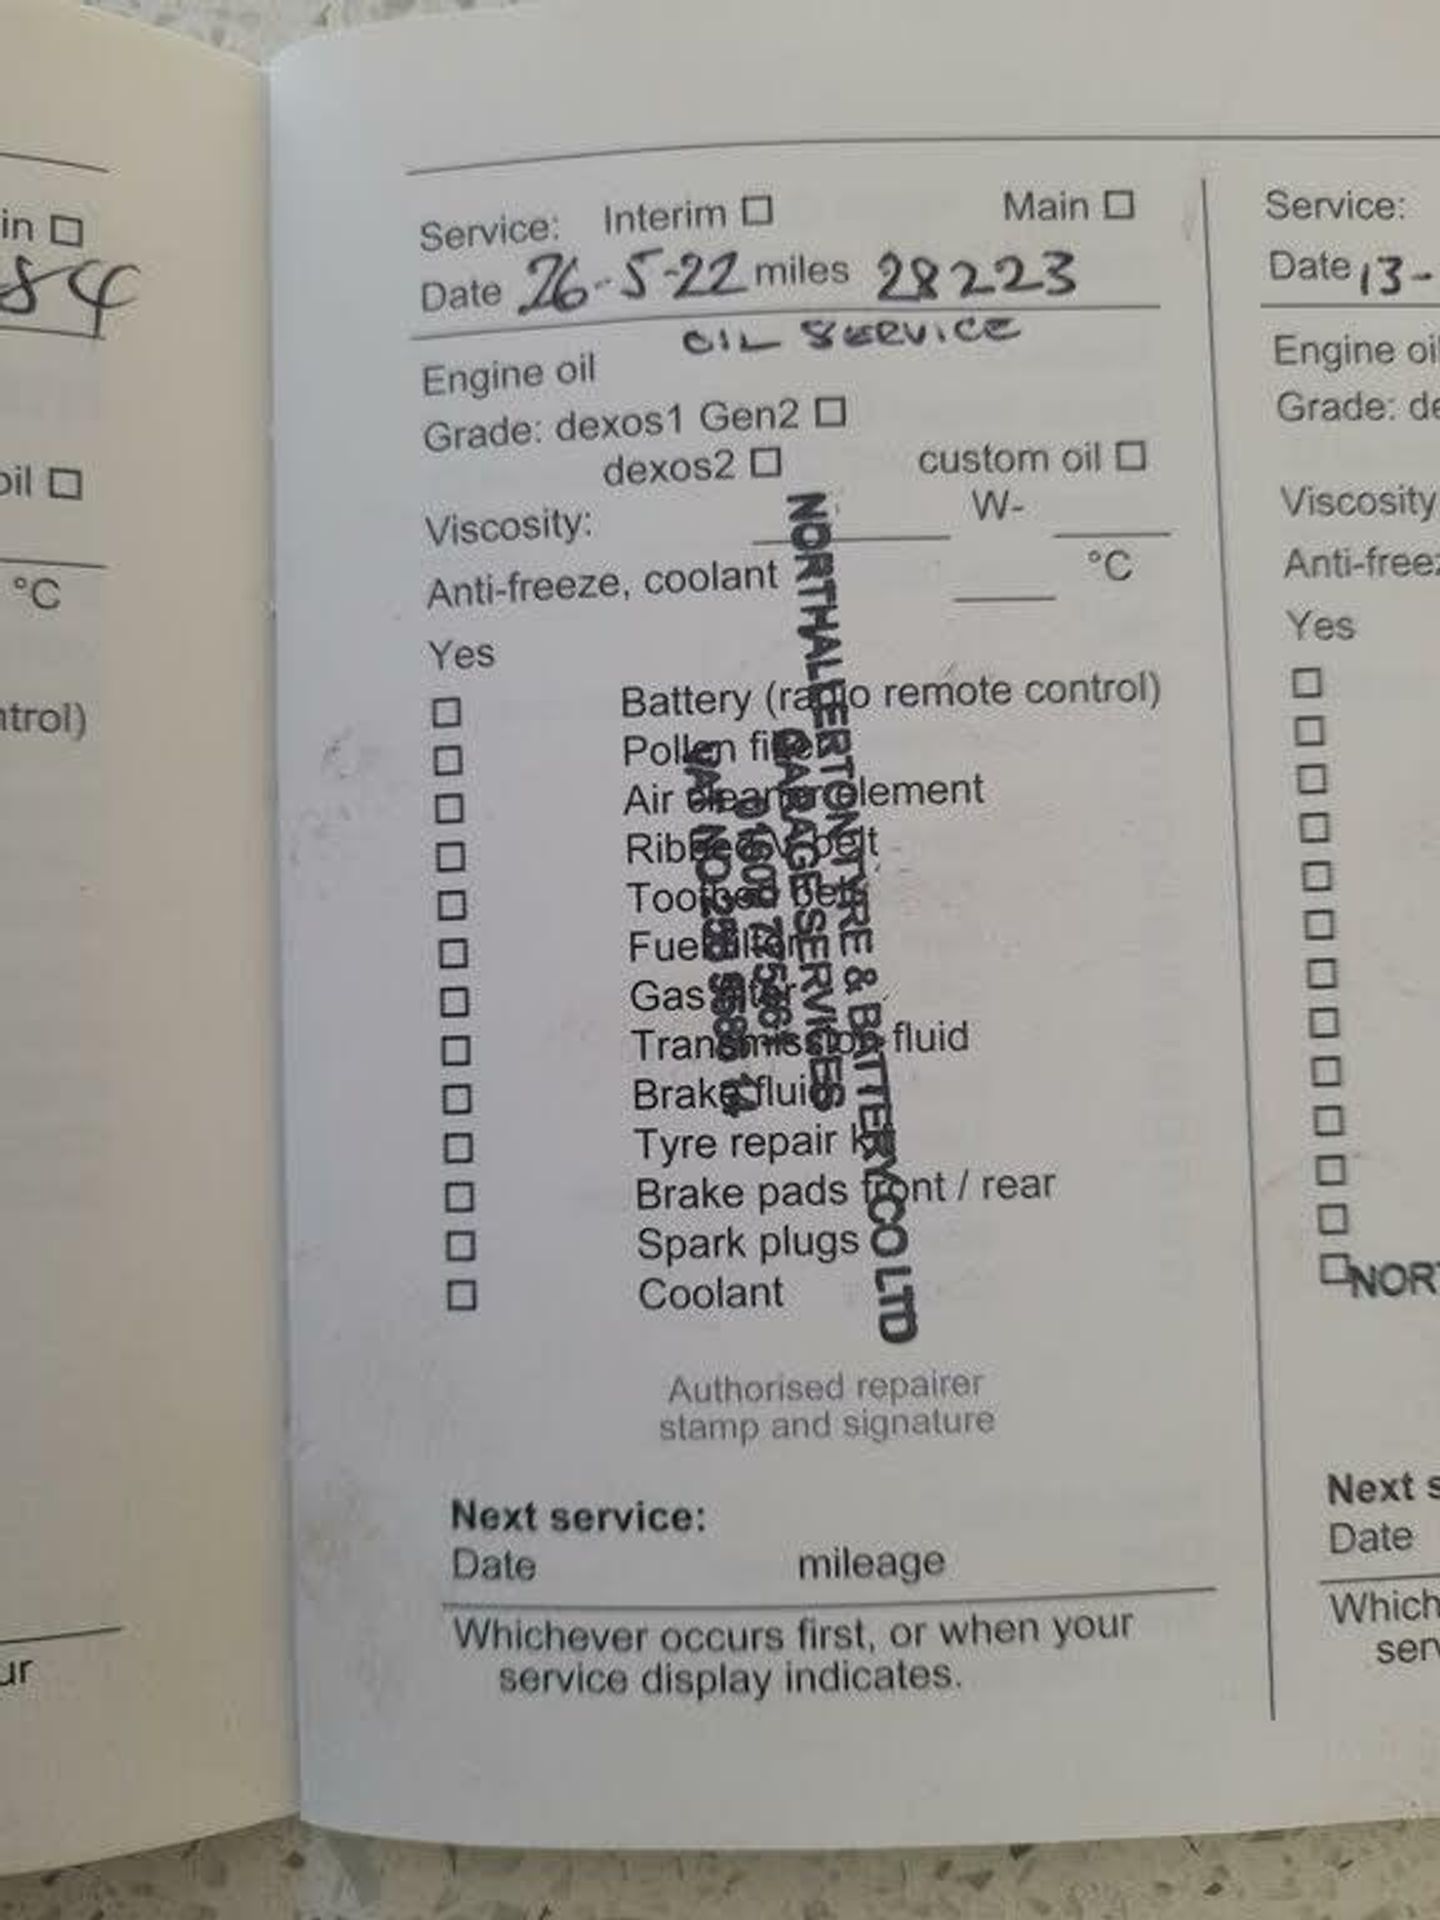 in ☐
84
oil ☐
°C
ntrol)
ur
Service: Interim ☐ Main ☐
Date 26-5-22 miles 28223
OIL SERVICE
Engine oil
Grade: dexos1 Gen2 ☐
dexos2 ☐ custom oil ☐
Viscosity: W-
Anti-freeze, coolant °C
Yes
☐ Battery (radio remote control)
☐ Pollen filter
☐ Air cleaner element
☐ Ribbed V-belt
☐ Toothed belt
☐ Fuel filter
☐ Gas filter
☐ Transmission fluid
☐ Brake fluid
☐ Tyre repair kit
☐ Brake pads front / rear
☐ Spark plugs
☐ Coolant
NORTHALLERTON TYRE & BATTERY CO LTD
GARAGE SERVICES
Authorised repairer
stamp and signature
Next service:
Date mileage
Whichever occurs first, or when your
service display indicates.
Service:
Date 13-
Engine oil
Grade: de
Viscosity
Anti-freez
Yes
☐
☐
☐
☐
☐
☐
☐
☐
☐
☐
☐
☐
☐
NORT
Next s
Date
Which
serv